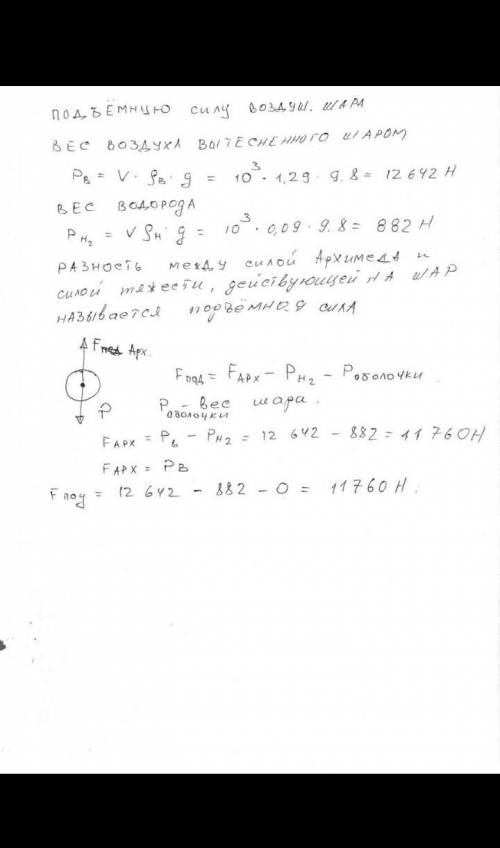 ПОДЪЁМНУЮ СИЛУ ВОЗДУШ. ШАРА
ВЕС ВОЗДУХА ВЫТЕСНЕННОГО ШАРОМ
Pв = V · ρв · g = 10³ · 1,29 · 9.8 = 12642 Н
ВЕС ВОДОРОДА
P H₂ = V ρн · g = 10³ · 0,09 · 9.8 = 882 Н
РАЗНОСТЬ МЕЖДУ СИЛОЙ АРХИМЕДА И
СИЛОЙ ТЯЖЕСТИ, ДЕЙСТВУЮЩЕЙ НА ШАР
НАЗЫВАЕТСЯ ПОДЪЁМНАЯ СИЛА
F Арх.
Fпод = FАрх – P H₂ – Pоболочки
P
Pоболочки – вес шара.
FАРХ = Pв – P H₂ = 12 642 – 882 = 11760Н
FАРХ = Pв
Fпод = 12 642 – 882 – 0 = 11760 Н.